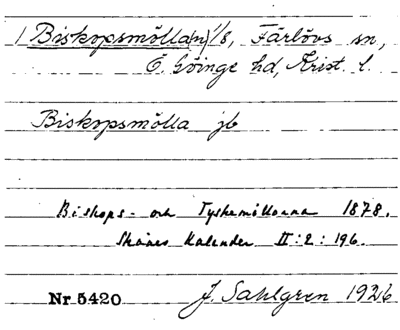 1 Biskopsmölla(n) 1/8, Färlövs sn,
Ö. Göinge hd, Krist. l.
Biskopsmölla jb
Biskops- och Tyskemöllorna 1878.
Skånes Kalender II:2:196.
Nr 5420 J. Sahlgren 1926